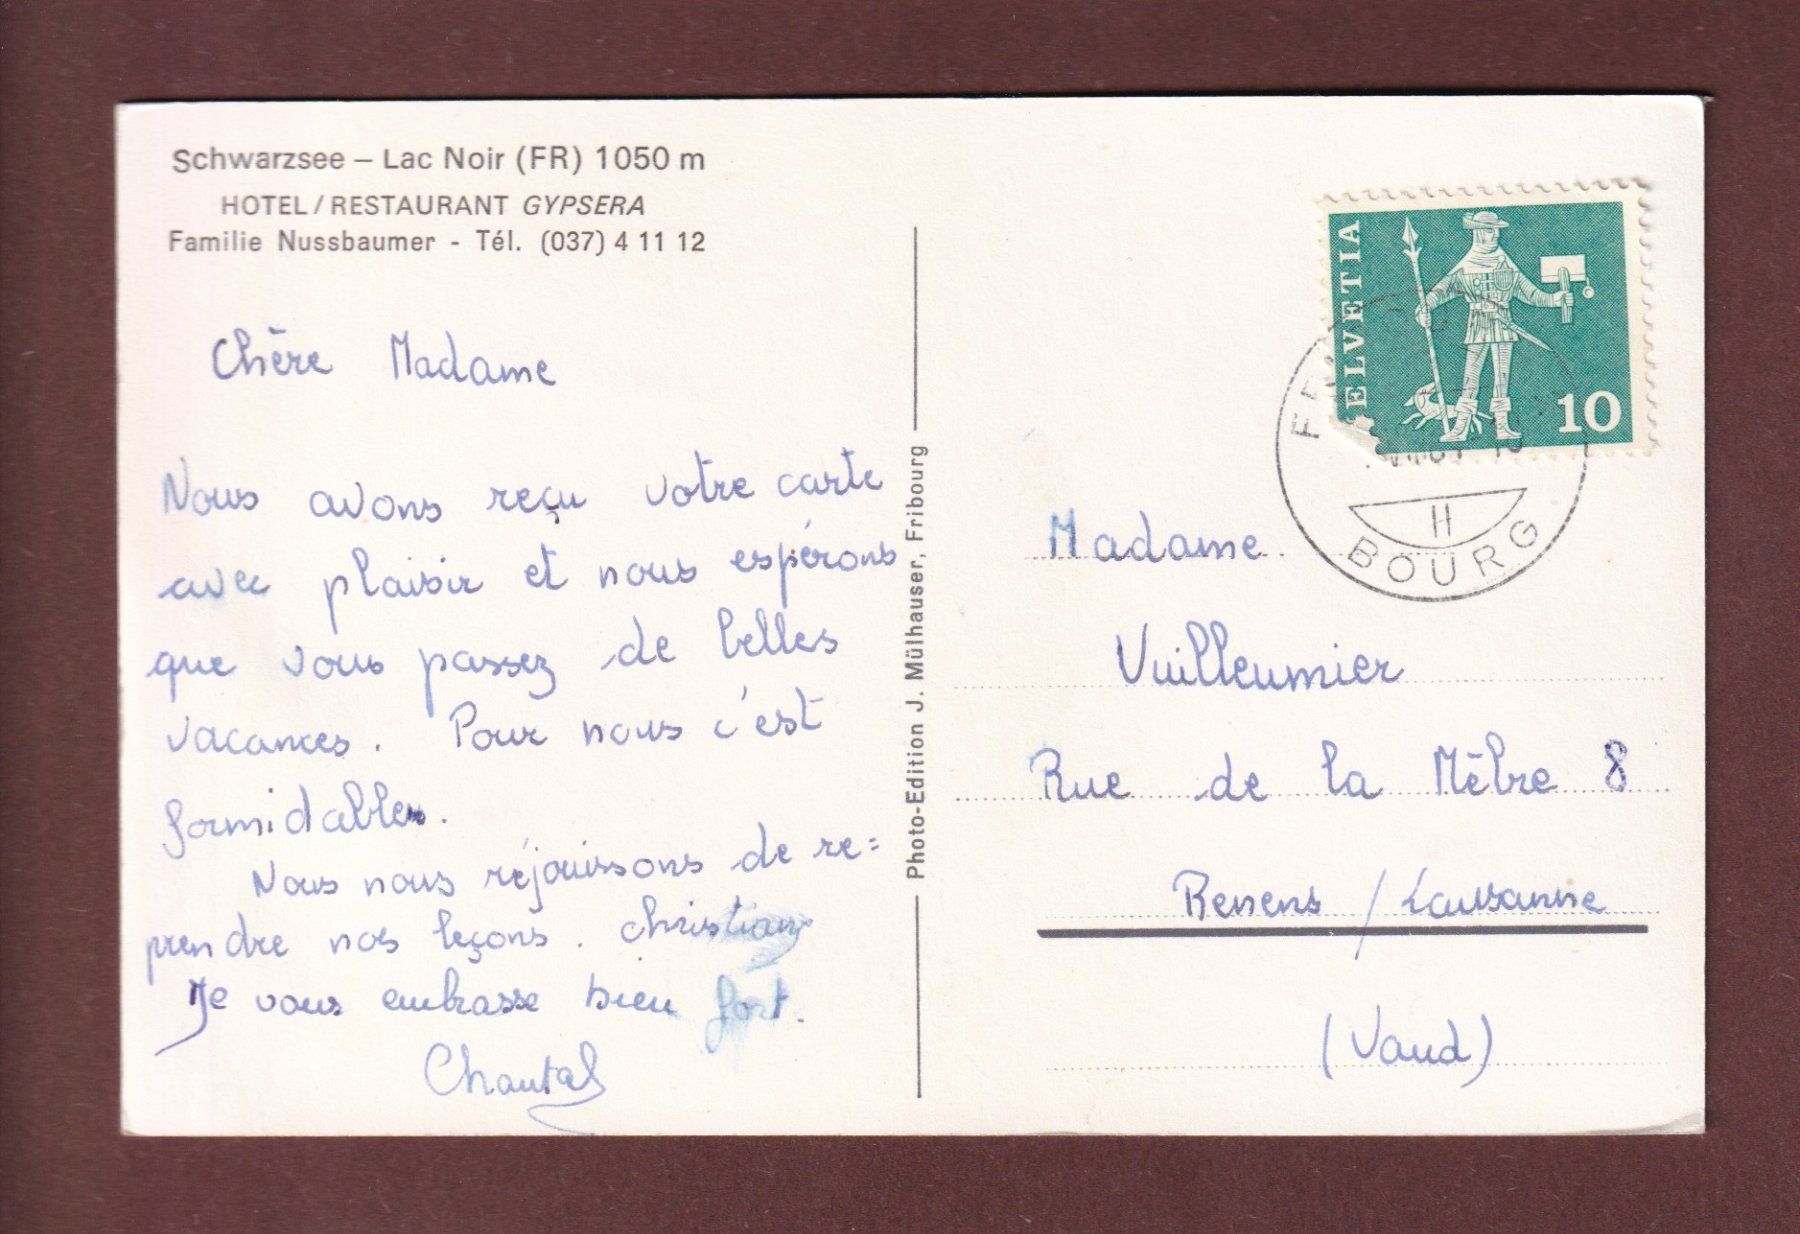 Schwarzsee – Lac Noir (FR) 1050 m
HOTEL/RESTAURANT GYPSERA
Familie Nussbaumer - Tél. (037) 4 11 12
Chère Madame
Nous avons reçu votre carte
avec plaisir et nous espérons
que vous passez de belles
vacances. Pour nous c'est
formidable.
Nous nous réjouissons de re=
prendre nos leçons. Christiane
Je vous embrasse bien fort.
Chantal
Photo-Edition J. Mülhauser, Fribourg
HELVETIA
10
BOURG
Madame
Vuilleumier
Rue de la Mèbre 8
Renens / Lausanne
(Vaud)